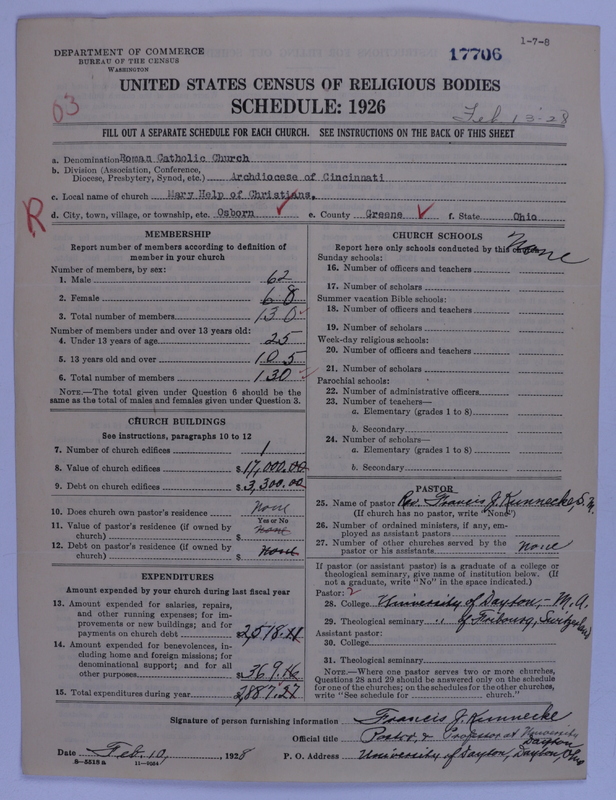 1-7-8
DEPARTMENT OF COMMERCE
BUREAU OF THE CENSUS
WASHINGTON
17706
UNITED STATES CENSUS OF RELIGIOUS BODIES
SCHEDULE: 1926
Feb 13-28
FILL OUT A SEPARATE SCHEDULE FOR EACH CHURCH. SEE INSTRUCTIONS ON THE BACK OF THIS SHEET
a. Denomination Roman Catholic Church
b. Division (Association, Conference,
Diocese, Presbytery, Synod, etc.) Archdiocese of Cincinnati
c. Local name of church Mary Help of Christians,
R d. City, town, village, or township, etc. Osborn e. County Greene f. State Ohio
MEMBERSHIP
Report number of members according to definition of
member in your church
Number of members, by sex:
1. Male 62
2. Female 68
3. Total number of members 130
Number of members under and over 13 years old:
4. Under 13 years of age 25
5. 13 years old and over 105
6. Total number of members 130
NOTE.—The total given under Question 6 should be the
same as the total of males and females given under Question 3.
CHURCH BUILDINGS
See instructions, paragraphs 10 to 12
7. Number of church edifices 1
8. Value of church edifices $17,000.00
9. Debt on church edifices $3,300.00
10. Does church own pastor's residence None
Yes or No
11. Value of pastor's residence (if owned by
church) $ None
12. Debt on pastor's residence (if owned by
church) $ None
EXPENDITURES
Amount expended by your church during last fiscal year
13. Amount expended for salaries, repairs,
and other running expenses; for im-
provements or new buildings; and for
payments on church debt $2,518.11
14. Amount expended for benevolences, in-
cluding home and foreign missions; for
denominational support; and for all
other purposes $369.16
15. Total expenditures during year 2,887.27
CHURCH SCHOOLS
Report here only schools conducted by this church None
Sunday schools:
16. Number of officers and teachers
17. Number of scholars
Summer vacation Bible schools:
18. Number of officers and teachers
19. Number of scholars
Week-day religious schools:
20. Number of officers and teachers
21. Number of scholars
Parochial schools:
22. Number of administrative officers
23. Number of teachers—
a. Elementary (grades 1 to 8)
b. Secondary
24. Number of scholars—
a. Elementary (grades 1 to 8)
b. Secondary
PASTOR
25. Name of pastor Rev. Francis J. Kunnecke, S. M.
(If church has no pastor, write "None")
26. Number of ordained ministers, if any, em-
ployed as assistant pastors
27. Number of other churches served by the
pastor or his assistants none
If pastor (or assistant pastor) is a graduate of a college or
theological seminary, give name of institution below. (If
not a graduate, write "No" in the space indicated.)
Pastor: 2
28. College University of Dayton, - M. A.
29. Theological seminary " of Fribourg, Switzerland
Assistant pastor:
30. College
31. Theological seminary
NOTE.—Where one pastor serves two or more churches,
Questions 28 and 29 should be answered only on the schedule
for one of the churches; on the schedules for the other churches,
write "See schedule for church."
Signature of person furnishing information Francis J. Kunnecke
Official title Pastor, & Professor at University Dayton
Date Feb. 10, 1928 P. O. Address University of Dayton, Dayton, Ohio
8-5518a 11-9054